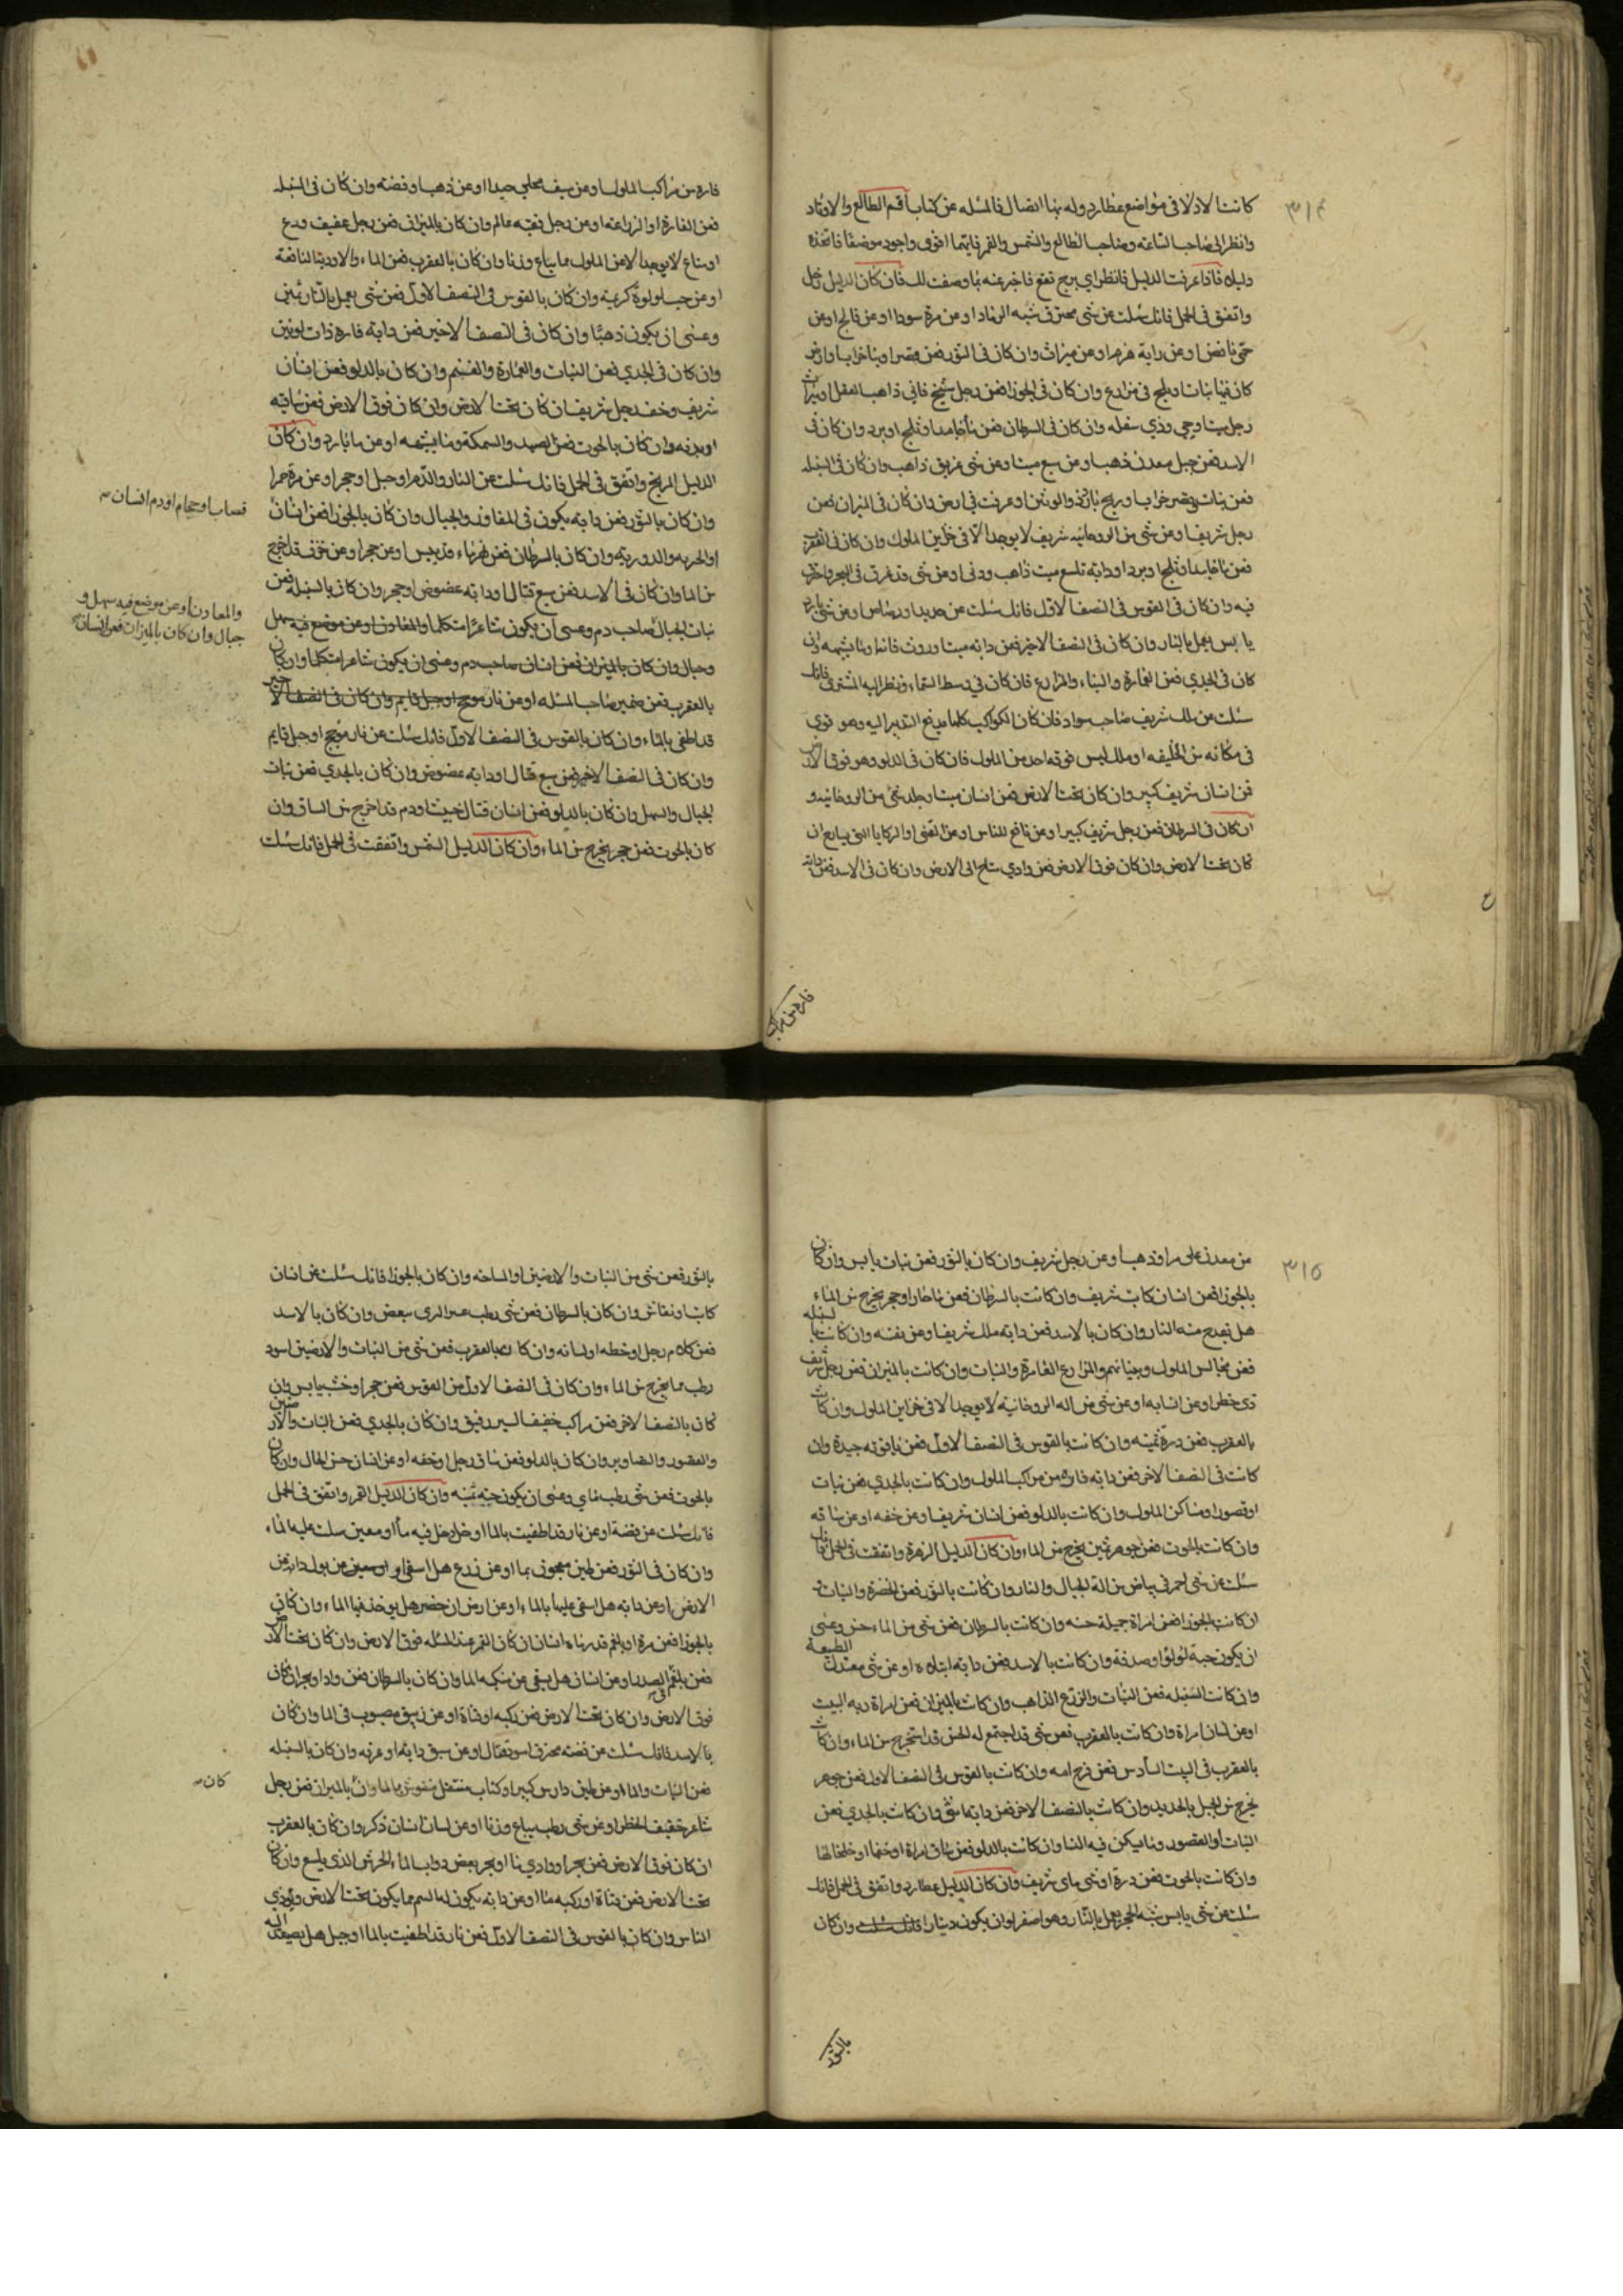 ٣١٤
كانت الادلا فى مواضع عطارد وله بها اتصال فالمسله عن كتاب اقم الطالع والاوتاد
وانظر الى صاحب الساعة وصاحب الطالع والشمس والقمر فايهما اقوى واجود موضعا فاتخذه
دليله فاذا عرفت الدليل فانظر اى برج تقع فاخبر عنه بما وصفت لك فان كان الدليل زحل
واتفق فى الحمل فانك سئلت عن شى محترق شبه الرماد او عن مرة سودا او عن فالج او عن
حمى نافض او عن دابة هرم او عن ميراث وان كان فى الثور فعن قصر او بنا خراب او ارض
كان فيها نبات او ملح فى مزارع وان كان فى الجوزا فعن رجل شيخ فانى ذاهب العقل او ميراث
رجل ميت او حى وذى سفله وان كان فى السرطان فعن ما جامد او ثلج او برد وان كان فى
الاسد فعن جبل معدن ذهب او عن سبع ميت او عن شى عريق ذاهب وان كان فى السنبله
فعن نبات او قصر خراب او ريح باردة وان كان فى الميزان فعن
رجل شريف او عن شى من الروحانيه شريف لا يوجد الا فى خزاين الملوك وان كان فى العقرب
فعن ما جامد او ثلج او برد او دابة تلسع ميت ذاهب او عن شى قد غرق فى البحر واحترق
فيه وان كان فى القوس فى النصف الاول فانك سئلت عن حديد او رصاص او عن شى بارد
يابس يعمل بالنار وان كان فى النصف الاخر فعن دابه ميت وما يشبهه وان
كان فى الجدي فعن العمارة والبناء والمزارع فان كان فى وسط السماء ونظر اليه المشترى فانك
سئلت عن ملك شريف صاحب سواد فان كان الكواكب كلها يدفع التدبير اليه وهو قوي
فى مكانه من الخليفه او ملك ليس فوقه احد من الملوك فان كان فى الدلو وهو فوق الارض
فعن انسان شريف كبير وان كان تحت الارض فعن انسان ميت او جلد شى من الروحانيه و
ان كان فى السرطان فعن رجل شريف كبير او عن نافع للناس او عن القنى او الركايا التى ان
كان تحت الارض وان كان فوق الارض فعن وادي سائح الى الارض وان كان فى الاسد فعن دابه
فاره من مراكب
فاره من مراكب الملوك او عن سيف محلى جيد او عن ذهب او فضه وان كان فى السنبله
فعن العمارة او الزراعه او عن رجل فقيه عالم وان كان بالميزان فعن رجل عفيف ورع
او متاع لا يوجد الا عن الملوك مما يباع وزنا وان كان بالعقرب فعن الماء والادوية النافعة
او عن حب لولوة كريمة وان كان بالقوس فى النصف الاول فعن شى يعمل بالنار ثمين
وعسى ان يكون ذهبًا وان كان فى النصف الاخير فعن دابه فاره ذات لونين
وان كان فى الجدي فعن النبات والعمارة والغنم وان كان بالدلو فعن انسان
شريف وخف رجل شريف ان كان تحت الارض وان كان فوق الارض فعن ساقيه
او بدنه وان كان بالحوت فعن الصيد والسمكة وما يشبهه او عن ما بارد وان كان
الدليل المريخ واتفق فى الحمل فانك سئلت عن النار والدم او جبل او حجر او عن مرة حمرا
قصاب او حجام او دم انسان
وان كان بالثور فعن دابه يكون فى المفاوز والجبال وان كان بالجوزا فعن انسان
او الحربه والدوريه وان كان بالسرطان فعن نهر ماء قد يبس او عن حجر او عن خزف قد اخرج
من الما وان كان فى الاسد فعن سبع قتال او دابه عضوض او حجر وان كان بالسنبله فعن
نبات الجبال صاحب دم وعسى ان يكون شاعرا متكلما والمعادن او عن موضع فيه سهل
والمعادن او عن موضع فيه سهل و
جبال وان كان بالميزان فعن انسان
وجبال وان كان بالميزان فعن انسان صاحب دم وعسى ان يكون شاعر متكلما وان كان
بالعقرب فعن ضمير صاحب المسله او عن نار موجج او جبل قايم وان كان فى النصف الاخير
قد اطفى بالماء وان كان بالقوس فى النصف الاول فانك سئلت عن نار موجج او جبل قايم
وان كان فى النصف الاخير فعن سبع قتال او دابه عضوض وان كان بالجدي فعن نبات
الجبال والسهل وان كان بالدلو فعن انسان قتال خبيث او دم قد اخرج من الساق وان
كان بالحوت فعن حجر يخرج من الماء وان كان الدليل الشمس واتفقت فى الحمل فانك سئلت
٣١٥
من معدن على مرا او ذهب او عن رجل شريف وان كان بالثور فعن نبات يابس وان كان
بالجوزا فعن انسان كاتب شريف وان كانت بالسرطان فعن ما حار او حجر يخرج من الماء
هل يقدح منه النار وان كان بالاسد فعن دابه ملك شريف او عن نفسه وان كانت بالسنبله
فعن مجالس الملوك والمزارع العامرة والنبات وان كانت بالميزان فعن رجل شريف
ذى خطر او عن انسابه او عن شى من اله الروحانيه لا يوجد الا فى خزاين الملوك وان كانت
بالعقرب فعن درة ثمينه وان كانت بالقوس فى النصف الاول فعن ياقوته جيدة وان
كانت فى النصف الاخر فعن دابه فاره من مراكب الملوك وان كانت بالجدي فعن نبات
او قصور او مساكن الملوك وان كانت بالدلو فعن انسان شريف او عن خفه او عن ساقه
وان كانت بالحوت فعن جوهر ثمين يخرج من الماء وان كان الدليل الزهرة واتفقت فى الحمل فانك
سئلت عن شى احمر فى بياض من الة الجبال والنار وان كانت بالثور فعن الخضرة والنبات و
ان كانت بالجوزا فعن امراة جميلة حسنه وان كانت بالسرطان فعن شى من الماء حسن وعسى
ان يكون حبة لولو او صدفة وان كانت بالاسد فعن دابه او عن شى معتدل الطبيعة
وان كانت السنبله فعن النبات والزرع الذاهب وان كانت بالميزان فعن امراة ربه البيت
او عن لسان امراة وان كانت بالعقرب فعن شى قد اجتمع له الحسن قد استخرج من الماء وان كانت
بالعقرب فى البيت السادس فعن فرج امه وان كانت بالقوس فى النصف الاول فعن جوهر
يخرج من الجبل بالحديد وان كانت بالنصف الاخر فعن دابه انثى وان كانت بالجدي فعن
النبات او القصور وما يسكن فيه النسا وان كانت بالدلو فعن ساق امراة او خفها او خلخالها
وان كانت بالحوت فعن درة او شى ماى شريف وان كان الدليل عطارد واتفق فى الحمل فانك
سئلت عن شى يابس شبه الحجر يعمل بالنار وهو اصفر او ان يكون دينار فانك سئلت وان كان
بالثور
بالثور فعن شى من النبات والارضين او المساحه وان كان بالجوزا فانك سئلت عن انسان
كاتب او نقاش وان كان بالسرطان فعن شى رطب وان كان بالاسد
فعن كلام رجل او خطه او لسانه وان كان بالعقرب فعن شى من النبات والارضين اسود
رطب مما يخرج من الماء وان كان فى النصف الاول من القوس فعن حجر او خشب يابس وان
كان بالنصف الاخر فعن مراكب خفيف السير رفيق وان كان بالجدي فعن النبات والارضين
والقصور والتصاوير وان كان بالدلو فعن ساق رجل او خفه او عن انسان حسن الحال وان كان
بالحوت فعن شى رطب ماي وعسى ان يكون حبه ثمينه وان كان الدليل القمر واتفق فى الحمل
فانك سئلت عن فضة او عن نار قد اطفيت بالما
وان كان فى الثور فعن طين معجون بما او عن زرع هل استقى
الارض او عن دابه هل استقى عليها بالماء او عن ارض ان حضر هل يوخذ فيها الماء وان كان
بالجوزا فعن مرة او بلغم قد رماه انسان ان كان القمر عند المسله فوق الارض وان كان تحت الارض
فعن بلغم الصدر او عن انسان هل بقى وان كان بالسرطان فعن واد او بحر ان كان
فوق الارض وان كان تحت الارض فعن ركيه او قناة او عن زيبق مصبوب فى الما وان كان
بالاسد فانك سئلت عن فضه محترق اسود او عن سبق دابه او عرقه وان كان بالسنبله
فعن النبات والماء او عن طين دارس كبير او كتاب منقوش بالما وان بالميزان فعن رجل
كان
شاعر خفيف الخطر او عن شى رطب يباع وزنا او عن لسان انسان ذكر وان كان بالعقرب
ان كان فوق الارض فعن بحر او وادي ما او بحر بعض دواب الماء الحرش الذى يلسع وان كان
تحت الارض فعن قناة او ركيه ما او عن دابه يكون لها السم مما يكون تحت الارض ويوذي
الناس وان كان بالقوس فى النصف الاول فعن نار قد اطفيت بالما او جبل هل يصعد اليه